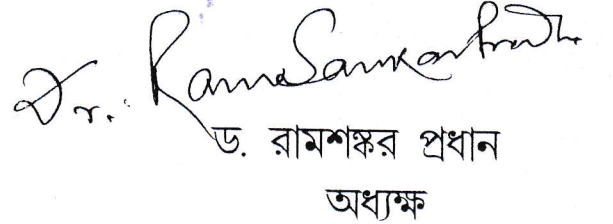 Dr. RamaSankar Pradhan
ড. রামশঙ্কর প্রধান
অধ্যক্ষ